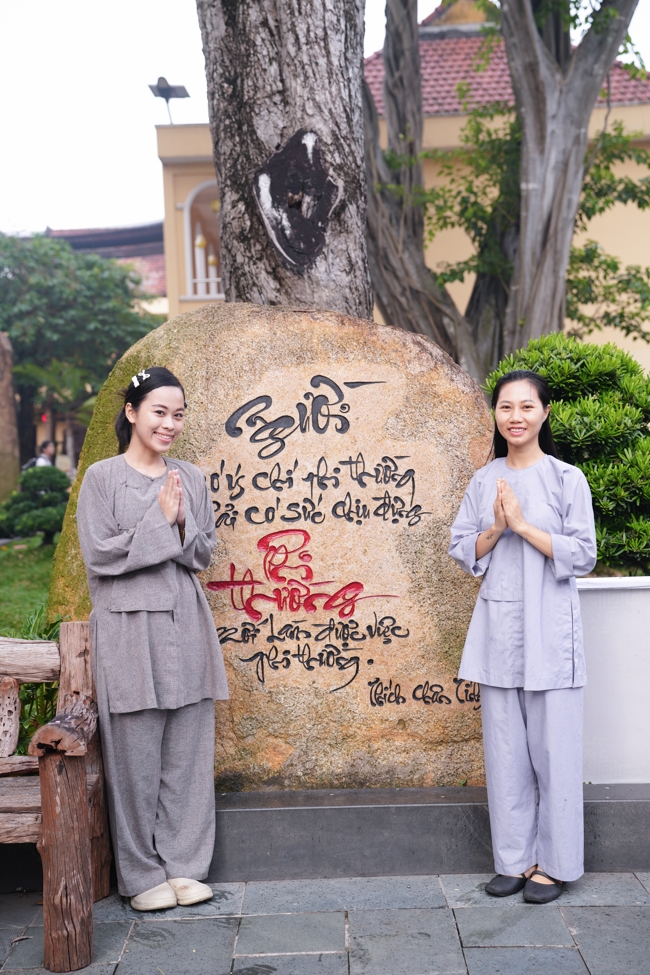 Người
có ý chí phi thường
phải có sức chịu đựng
Phi
thường
mới làm được việc
phi thường.
Thích Chân Tính